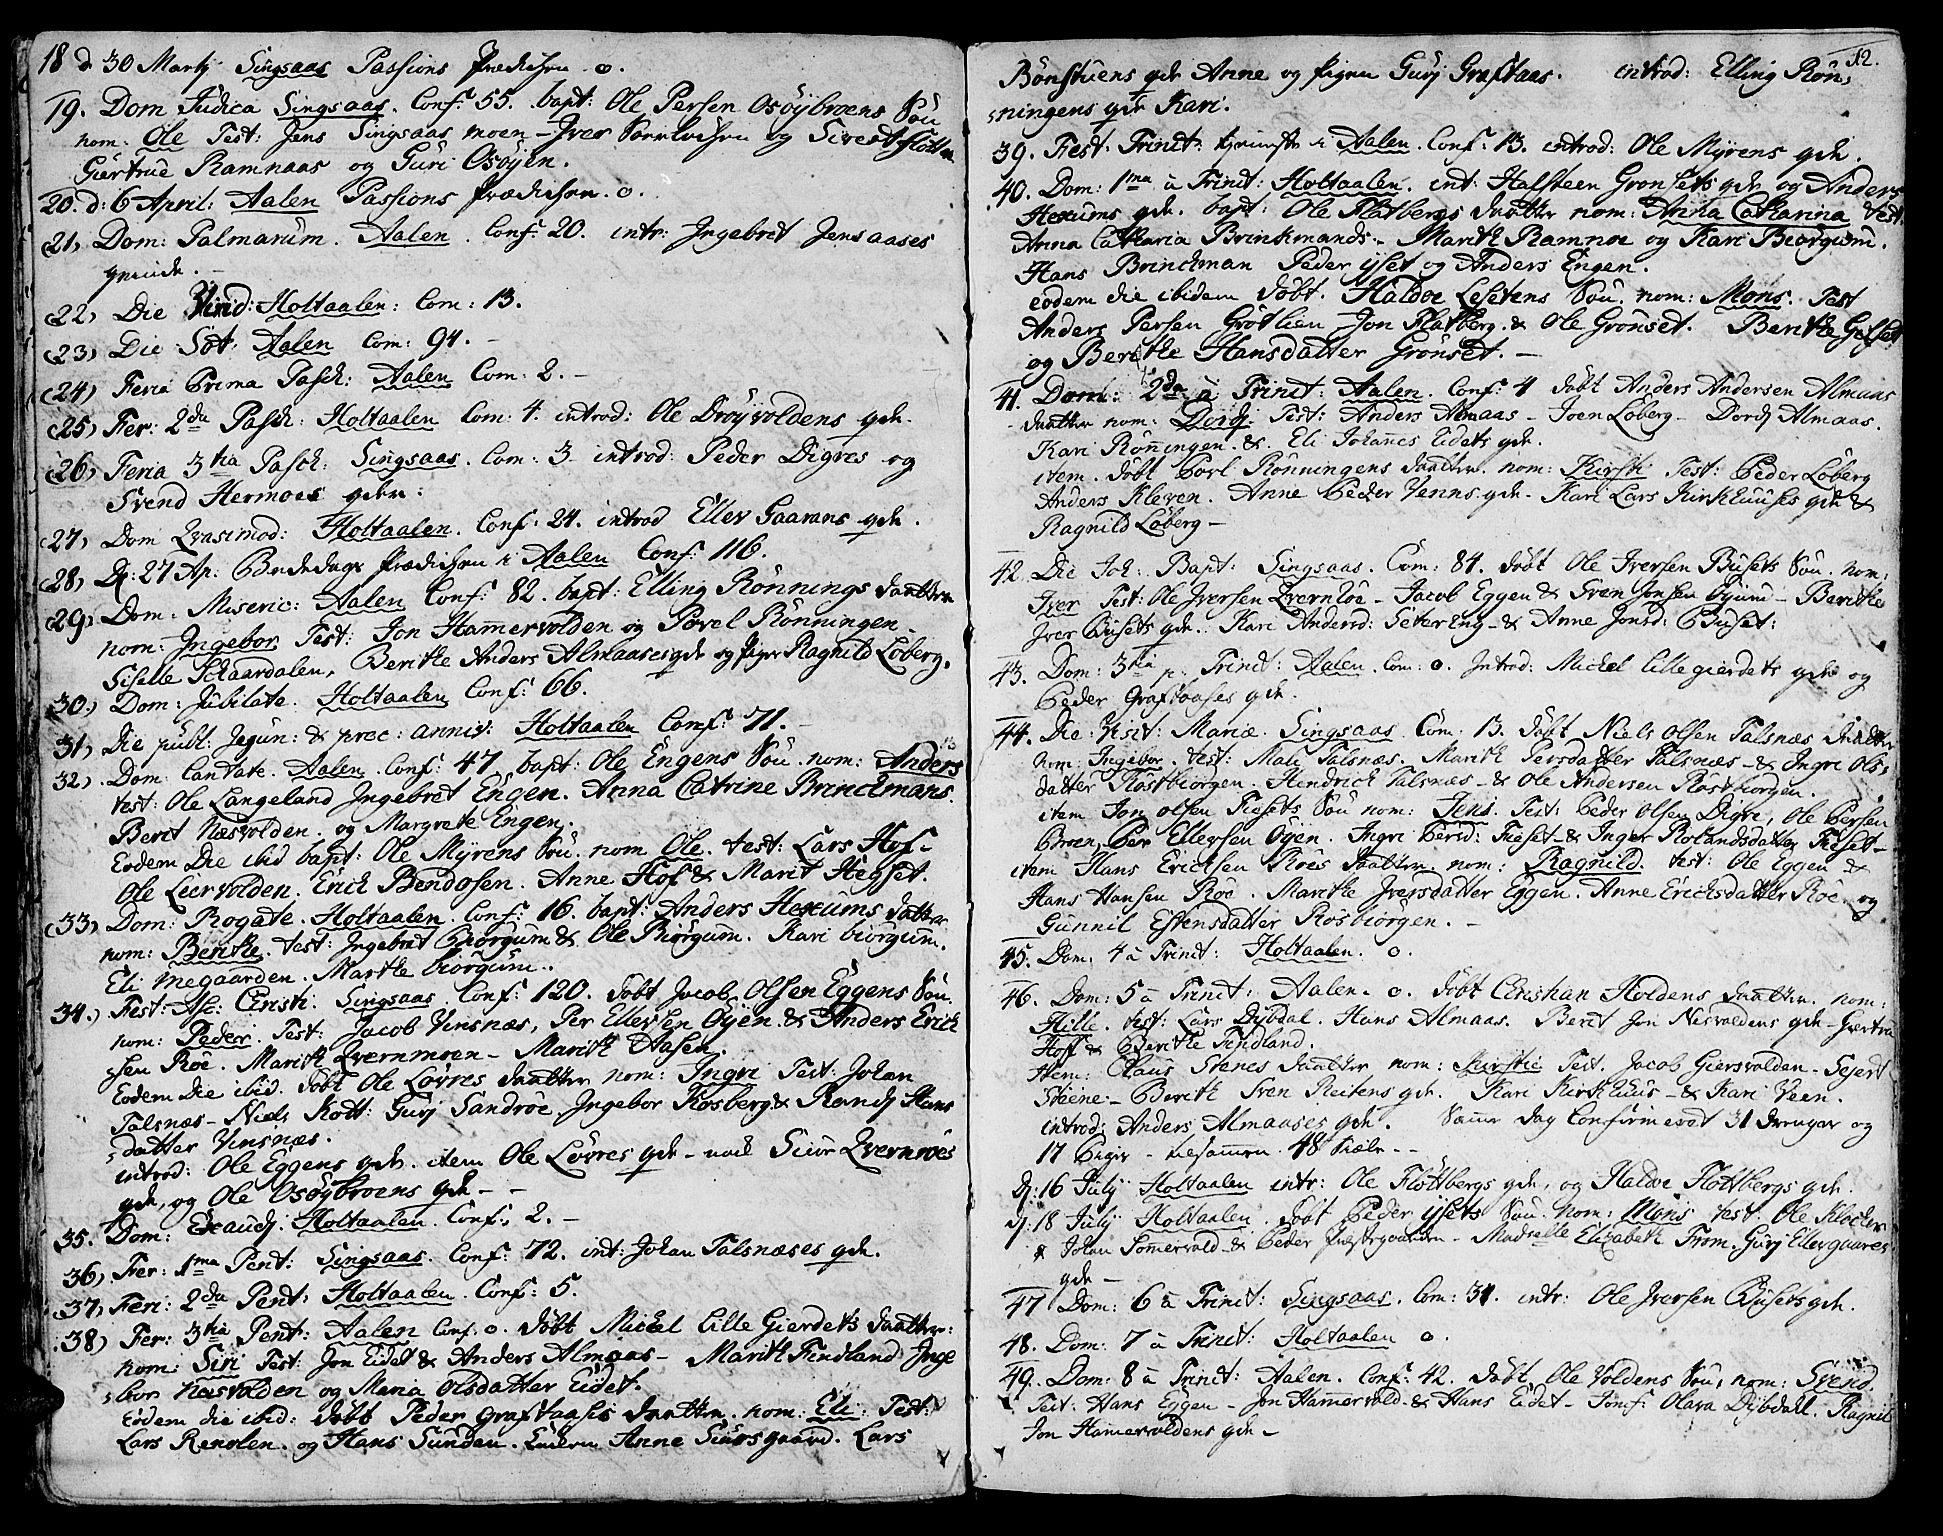 18 d 30 Martij Singsaas Passions Prædichen o.
19. Dom Judica Singsaas. Conf: 55. bapt: Ole Persen Osøybroens Søn
nom: Ole Test: Jens Singsaas moen - Iver og Sivert
Giertrue Ramnaas og Guri Osøyen.
20. d: 6 April: Aalen Passions Prædichen. o.
21) Dom: Palmarum. Aalen. Conf: 20. intr: Ingebret Jensaases
qvinde. -
22) Die Virid: Holtaalen: Com: 13.
23) Die Sôt: Aalen Com: 94. -
24) Feria Prima Pasch: Aalen Com: 2. -
25) Fer: 2da Pasch: Holtaalen Com: 4. introd: Ole Drøyvoldens qde.
26) Feria 3tia Pasch: Singsaas. Com: 3 - introd: Peder Digres og
Svend Hermoes qder:
27) Dom Qvasimod: Holtaalen. Conf: 24. introd Eller Gaarans qde.
28) D: 27 Ap: Bededags Prædichen i Aalen Conf: 116.
29) Dom. Miseric: Aalen Conf: 82. bapt: Elling Rønnings daatter
nom: Ingebor. Test: Jon Hamervolden og Povel Rønningen -
Siselle Schaardalen, Berithe Anders Almaases qde og Piger Ragnild Løberg.
30) Dom: Jubilate. Holtaalen Conf: 66.
31) Die publ: Jejun: & prec: annis: Holtaalen Conf: 71. -
32) Dom: Cantate. Aalen. Conf: 47. bapt: Ole Engens Søn. nom: Anders
test: Ole Langeland Ingebret Engen. Anna Catrine Brinchmans.
Berit Næsvolden. og Margrete Engen.
Eodem Die ibid bapt: Ole Myrens Søn. nom Ole. test: Lars Hof -
Ole Leervolden. Erich Bendosen. Anne Hof & Marit Hegset.
33) Dom: Rogate. Holtaalen. Conf: 16. bapt: Anders Hexums datter
nom: Berithe. test: Ingebret Biørgum & Ole Biørgum. Kari biørgum.
Eli megaarden. Marthe biørgum.
34.) Fest: Asc: Christi. Singsaas. Conf: 120. døbt Jacob Olsen Eggens Søn.
nom: Peder. Test: Jacob Vinsnæs, Per Ellefsen Øyen & Anders Erich
sen Roe. Marith Qvernmoen - Marith Aasen.
Eodem die ibid. døbt Ole Løvres daatter nom: Ingri Test: Johan
Talsnæs - Niels Kott: Gurj Sandroe, Ingebor Fosberg & Randj Hans
datter Vinsnæs.
introd: Ole Eggens qde. item Ole Løvres qde - nock Siur Qvernroes
qde, og Ole Osøybroens qde - -
35. Dom: Exaudj. Holtaalen. Conf: 2. -
36) Fer: 1ma Pent: Singsaas. Conf: 72. int: Johan Talsnæses qde.
37) Feri: 2da Pent: Holtaalen. Conf: 5.
38) Fer: 3tia Pent: Aalen Conf. o. døbt Michel Lille Gierdets daatter:
nom: Siri Test: Jon Eidet & Anders Almaas - Marith Findland Inge
bor Næsvolden og Maria Olsdatter Eidet.
Eodem die ibid: døbt Peder Graftaases daatter. nom: Eli: Test:
Lars Renolen. og Hans Sunden. Anne Siursgaard. Lars
12.
Bönstuens qde Anne og Pigen Gurj Graftaas. introd: Elling Røn,
ningens qde Kari.
39. Fest: Trinit: i Aalen. Conf: 13. introd: Ole Myrens qde.
40. Dom: 1ma a Trinit: Holtaalen. int: Halsteen Grønsets qde og Anders
Hexums qde. bapt: Ole Flatbergs daatter nom: Anna Catharina test
Anna Catharia Brinkmands - Marith Ramnoe og Kari Biørgum.
Hans Brinchman Peder ijset og Anders Engen.
eodem die ibidem døbt. Haldoe Lesetens Søn. nom: Mons. Test
Anders Persen Grøtlien Jon Flatberg. & Ole Grønset. Berithe
og Berithe Hansdatter Grønset. -
41. Dom: 2da a Trinit: Aalen. Conf: 4 døbt Anders Andersen Almaas
daatter nom: Dordj. Test: Anders Almaas - Joen Løberg - Dordj Almaas.
Kari Rønningen. & Eli Johannes Eidets qde.
item. døbt Porl Rønningens daatter. nom: Kirsti Test: Peder Løberg
Anders Kleven. Anne Peder Venns qde - Kari Lars Kirkhuuses qde &
Ragnild Løberg -
42. Die Joh: Bapt: Singsaas. Com: 84. døbt Ole Iversen Busets Søn. nom:
Iver Test: Ole Iversen Qvernroe - Jacob Eggen & Sven Jonsen - Berithe
Iver Busets qde. Kari Andersd: Setereng - & Anne Jonsd: Buset:
43. Dom: 3tia p: Trinit: Aalen. Com: o. Introd: Michel lillegierdets qde og
Peder Graftaases qde.
44. Die: Visit: Mariæ. Singsaas. Com: 13. døbt Niels Olsen Talsnæs daatter
nom: Ingebor. test: Mali Talsnæs. Marith Persdatter Talsnæs - & Ingri Ols,
datter Rostbiørgen. Hendrich Talsnæs - & Ole Andersen Rostbiørgen.
item Jon Olsen Fiesets Søn nom: Jens. Test: Peder Olsen Digre, Ole Persen
Broen, Per Ellevsen Øyen. Ingri Persd: Fieset - & Inger Rolandsdatter Fieset -
item Hans Erichsen Roes daatter. nom: Ragnild. test: Ole Eggen &
Hans Hansen Roe. Marithe Iversdatter Eggen. Anne Erichsdatter Roe. og
Gunnil Estensdatter Rosbiørgen. -
45. Dom: 4 a Trinit: Holtaalen. o.
46. Dom: 5 a Trinit: Aalen. o. døbt Christian Holdens daatter. nom:
Hille. test: Lars Dybdal. Hans Almaas. Berit Jon Nesvoldens qde - Giertru
Hoff & Berithe Findland.
Item: Claus Stenes daatter nom: Kirstie Test. Jacob Giersvolden - Sejert
Steene - Berith Sven Reitens qde. Kari Kirkhuus - & Kari Veen.
introd: Anders Almaases qde. Samme dag Confirmerot 31 drenger og
17 Piger - tilsammen. 48 Siæle - -
D: 16 Julij Holtaalen intr: Ole Flottbergs qde, og Haldoe Flottbergs qde.
D: 18 Julij Holtaalen. døbt Peder ijsets Søn. Nom: Mons test. Ole Klocker
& Johan Sommervold & Peder - Madselle Elizabeth From. Gurj Ellevgaares
qde -
47 Dom: 6 a Trinit: Singsaas. Com: 31. intr: Ole Iversen Busets qde.
48. Dom: 7 a Trinit: Holtaalen o.
49. Dom: 8 a Trinit: Aalen. Conf: 42. døbt Ole Voldens Søn, nom: Svend.
Test: Hans Eggen - Jon Hamervold & Hans Eidet - Jomf: Olava Dybdahl. Ragnil
Jon Hamervoldens qde -